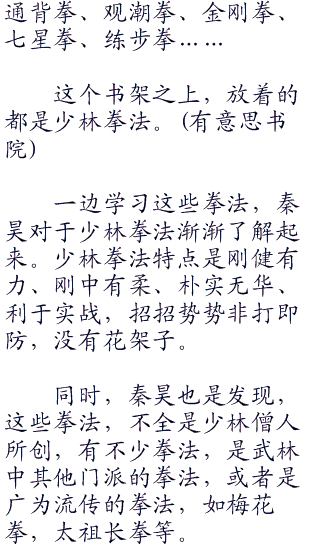 通背拳、观潮拳、金刚拳、
七星拳、练步拳……
这个书架之上，放着的
都是少林拳法。(有意思书
院)
一边学习这些拳法，秦
昊对于少林拳法渐渐了解起
来。少林拳法特点是刚健有
力、刚中有柔、朴实无华、
利于实战，招招势势非打即
防，没有花架子。
同时，秦昊也是发现，
这些拳法，不全是少林僧人
所创，有不少拳法，是武林
中其他门派的拳法，或者是
广为流传的拳法，如梅花
拳，太祖长拳等。